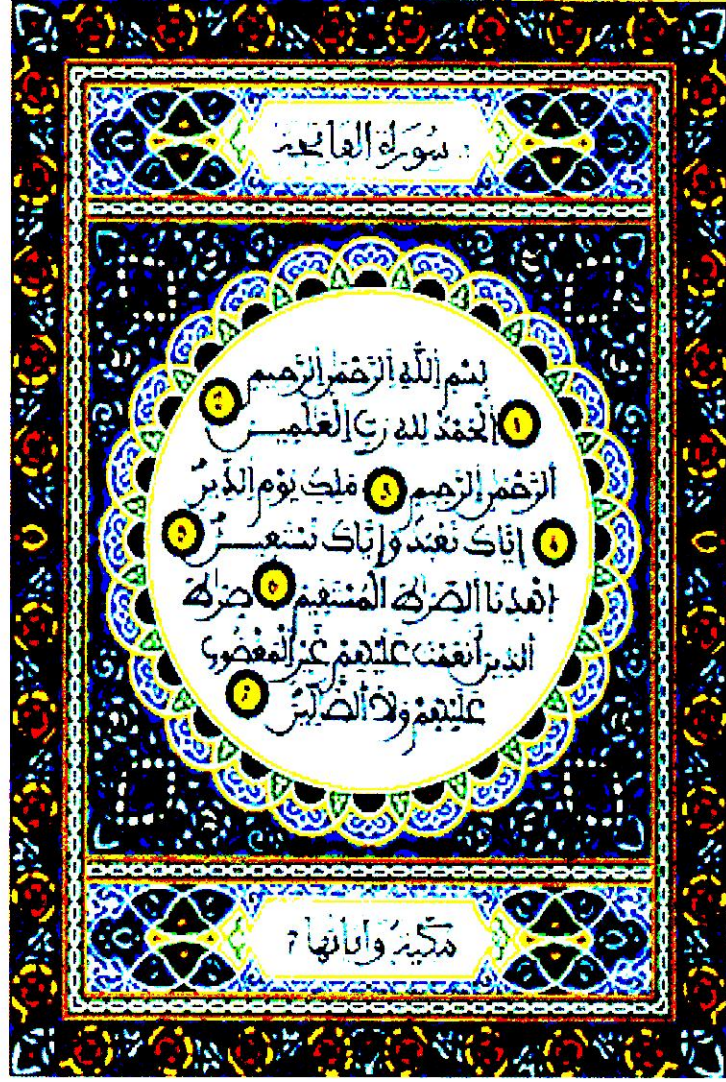 سورة الفاتحة
بِسْمِ اِللَّهِ اِلرَّحْمَٰنِ اِلرَّحِيمِ
١ اِلْحَمْدُ لِلهِ رَبِّ اِلْعَٰلَمِينَ ٢
اَلرَّحْمَٰنِ اِلرَّحِيمِ ٣ مَلِكِ يَوْمِ اِلدِّينِ
٤ إِيَّاكَ نَعْبُدُ وَإِيَّاكَ نَسْتَعِينُ ٥
اِهْدِنَا اَلصِّرَٰطَ اَلْمُسْتَقِيمَ ٦ صِرَٰطَ
اَلذِينَ أَنْعَمْتَ عَلَيْهِمْ غَيْرِ اِلْمَغْضُوبِ
عَلَيْهِمْ وَلَا اَلضَّآلِّينَ
مكية وآياتها ٧